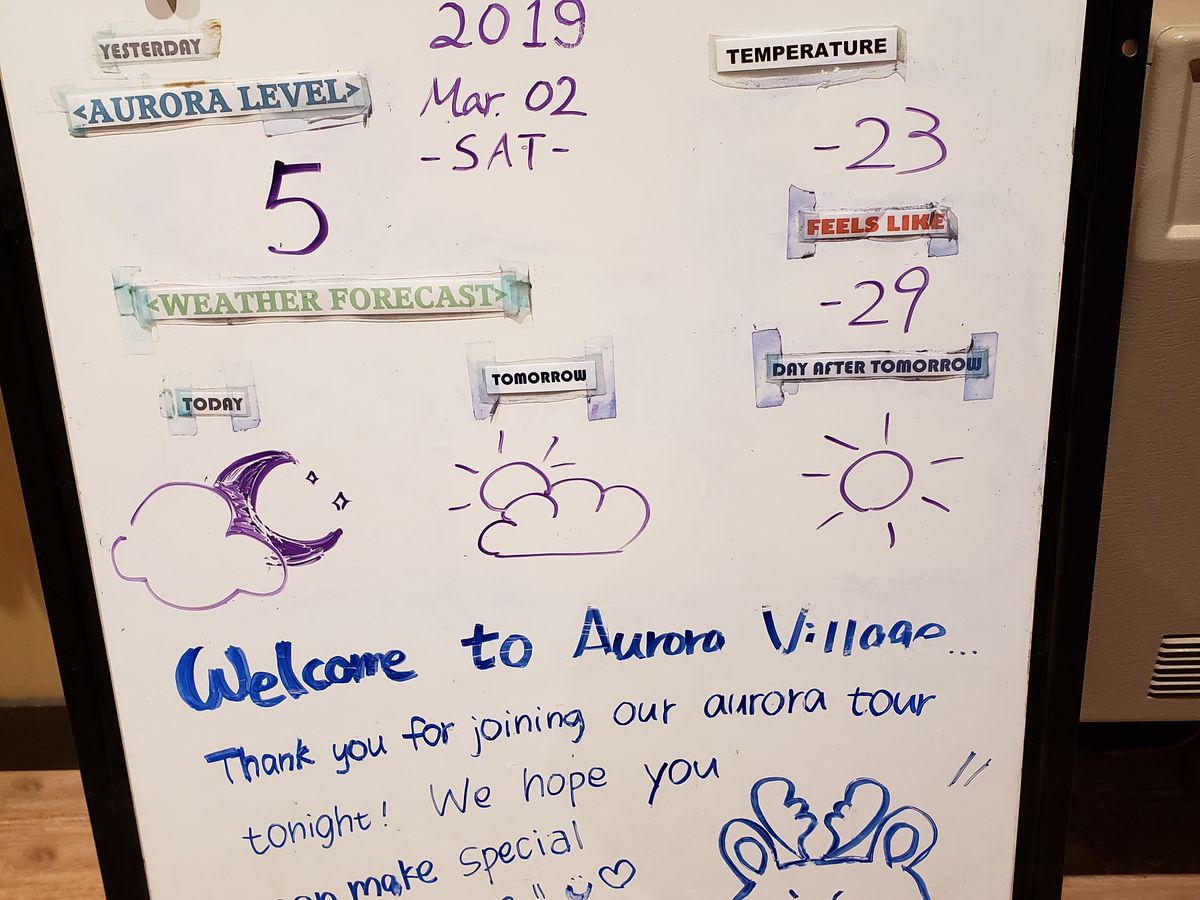 2019
YESTERDAY
TEMPERATURE
<AURORA LEVEL>
Mar. 02
-SAT-
-23
5
FEELS LIKE
<WEATHER FORECAST>
-29
TODAY
TOMORROW
DAY AFTER TOMORROW
Welcome to Aurora Village...
Thank you for joining our aurora tour
tonight! We hope you
make special